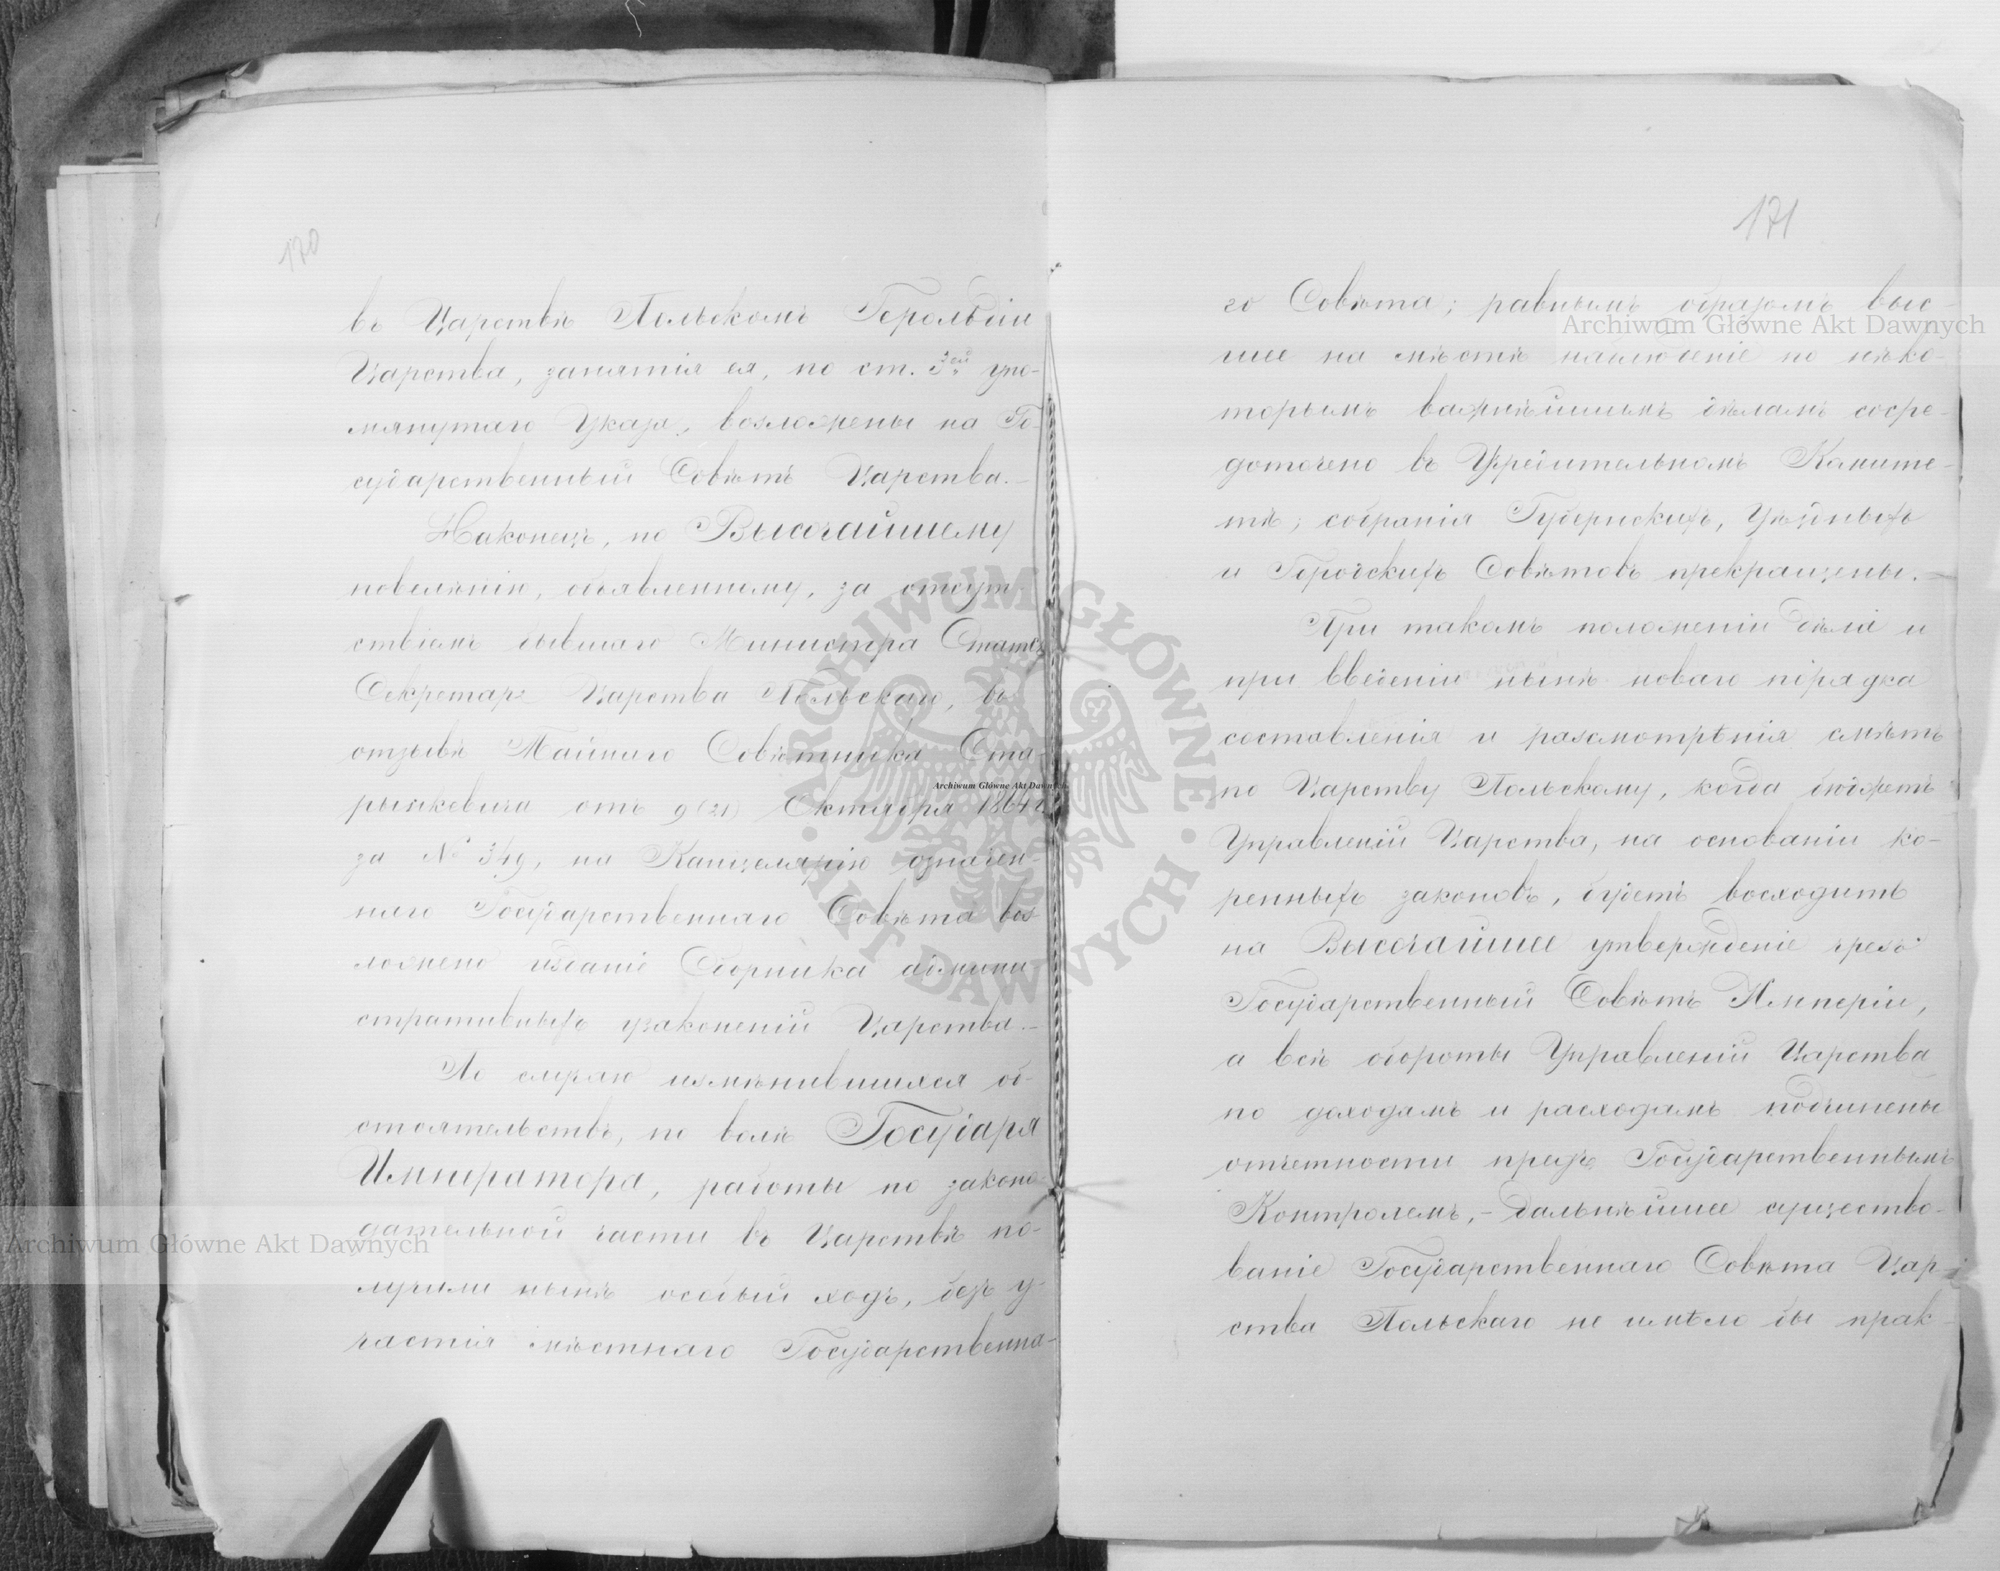 170
въ Царствѣ Польскомъ Герольдіи
Царства, занятія ея, по ст. 3ей упо-
мянутаго Указа, возложены на Го-
сударственный Совѣтъ Царства.—
Наконецъ, по Высочайшему
повелѣнію, объявленному, за отсут-
ствіемъ бывшаго Министра Статсъ
Секретаря Царства Польскаго, въ
отзывѣ Тайнаго Совѣтника Ста-
рынкевича отъ 9 (21) Октября 1864 г.
за № 349, на Канцелярію означен-
наго Государственнаго Совѣта воз-
ложено изданіе Сборника админи
стративныхъ узаконеній Царства.—
По случаю измѣнившихся об-
стоятельствъ, по волѣ Государя
Императора, работы по законо-
дательной части въ Царствѣ по-
лучили нынѣ особый ходъ, безъ у-
частія мѣстнаго Государственна-
171
го Совѣта; равнымъ образомъ выс-
шее на мѣстѣ наблюденіе по нѣко-
торымъ важнѣйшимъ дѣламъ сосре-
доточено въ Учредительномъ Комите-
тѣ; собранія Губернскихъ, Уѣздныхъ
и Городскихъ Совѣтовъ прекращены.—
При такомъ положеніи дѣла и
при введеніи нынѣ новаго порядка
составленія и разсмотрѣнія смѣтъ
по Царству Польскому, когда бюджетъ
Управленій Царства, на основаніи ко-
ренныхъ законовъ, будетъ восходить
на Высочайшее утвержденіе чрезъ
Государственный Совѣтъ Имперіи,
а всѣ обороты Управленій Царства
по доходамъ и расходамъ подчинены
отчетности предъ Государственнымъ
Контролемъ,— дальнѣйшее существо-
ваніе Государственнаго Совѣта Цар-
ства Польскаго не имѣло бы прак-
Archiwum Główne Akt Dawnych
Archiwum Główne Akt Dawnych
Archiwum Główne Akt Dawnych
ARCHIWUM GŁÓWNE · AKT DAWNYCH ·